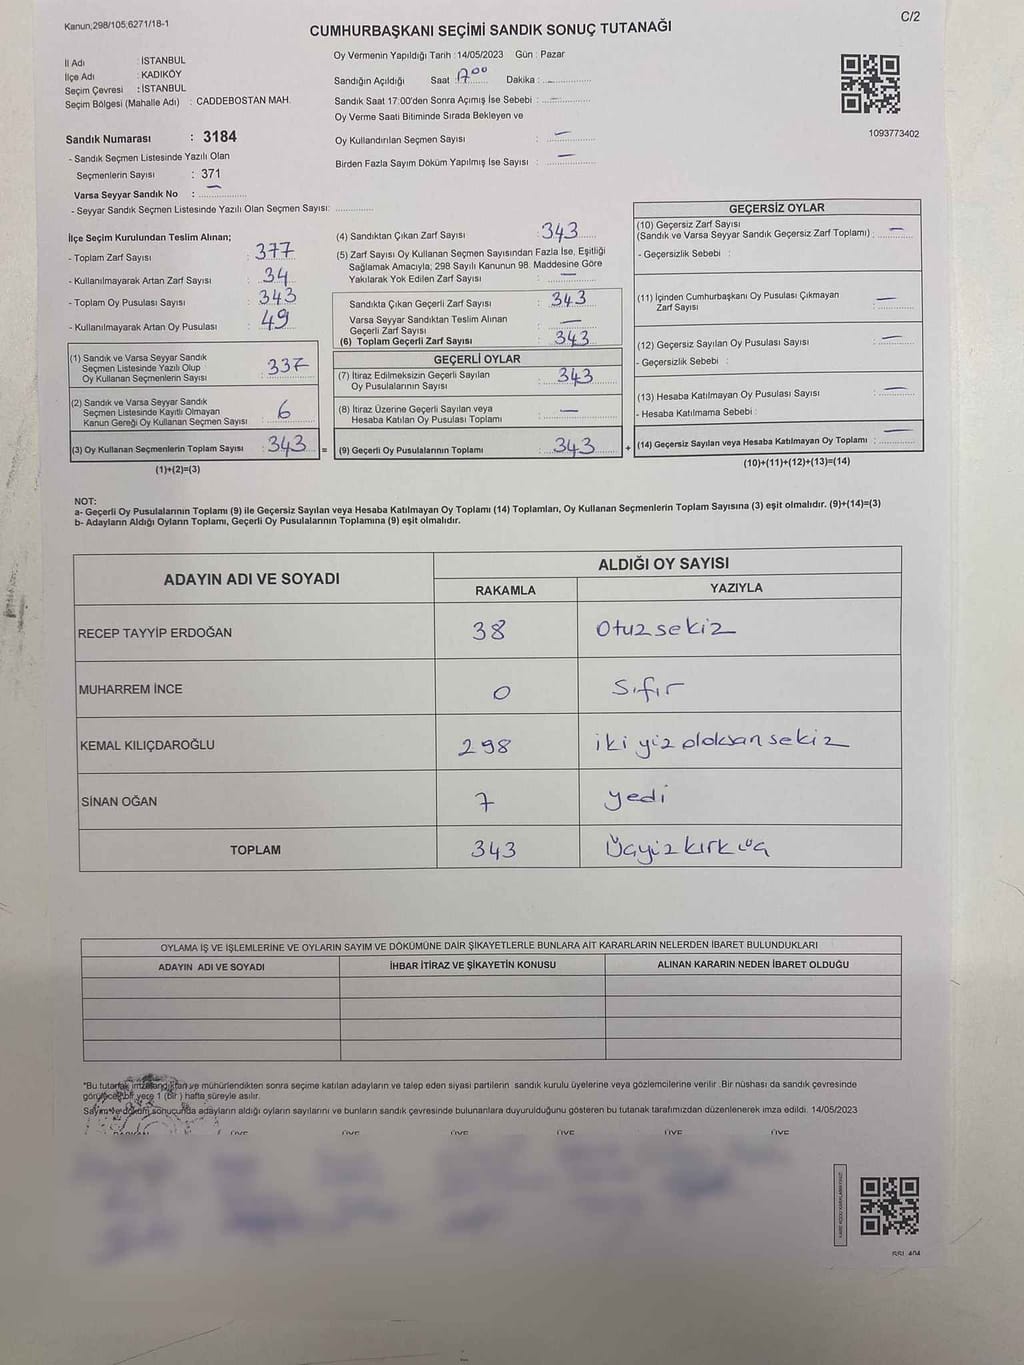 Kanun;298/105;6271/18-1
C/2
CUMHURBAŞKANI SEÇİMİ SANDIK SONUÇ TUTANAĞI
İl Adı : İSTANBUL
İlçe Adı : KADIKÖY
Seçim Çevresi : İSTANBUL
Seçim Bölgesi (Mahalle Adı) : CADDEBOSTAN MAH.
Oy Vermenin Yapıldığı Tarih :14/05/2023 Gün : Pazar
Sandığın Açıldığı Saat : 17:00 Dakika :
Sandık Saat 17:00'den Sonra Açımış İse Sebebi :
Oy Verme Saati Bitiminde Sırada Bekleyen ve
Oy Kullandırılan Seçmen Sayısı : —
Birden Fazla Sayım Döküm Yapılmış İse Sayısı : —
1093773402
Sandık Numarası : 3184
- Sandık Seçmen Listesinde Yazılı Olan
Seçmenlerin Sayısı : 371
Varsa Seyyar Sandık No : —
- Seyyar Sandık Seçmen Listesinde Yazılı Olan Seçmen Sayısı:
İlçe Seçim Kurulundan Teslim Alınan;
- Toplam Zarf Sayısı : 377
- Kullanılmayarak Artan Zarf Sayısı : 34
- Toplam Oy Pusulası Sayısı : 343
- Kullanılmayarak Artan Oy Pusulası : 49
(1) Sandık ve Varsa Seyyar Sandık
Seçmen Listesinde Yazılı Olup
Oy Kullanan Seçmenlerin Sayısı : 337
(2) Sandık ve Varsa Seyyar Sandık
Seçmen Listesinde Kayıtlı Olmayan
Kanun Gereği Oy Kullanan Seçmen Sayısı : 6
(3) Oy Kullanan Seçmenlerin Toplam Sayısı : 343 =
(1)+(2)=(3)
(4) Sandıktan Çıkan Zarf Sayısı : 343
(5) Zarf Sayısı Oy Kullanan Seçmen Sayısından Fazla İse, Eşitliği
Sağlamak Amacıyla; 298 Sayılı Kanunun 98. Maddesine Göre
Yakılarak Yok Edilen Zarf Sayısı : —
Sandıkta Çıkan Geçerli Zarf Sayısı : 343
Varsa Seyyar Sandıktan Teslim Alınan
Geçerli Zarf Sayısı : —
(6) Toplam Geçerli Zarf Sayısı : 343
GEÇERLİ OYLAR
(7) İtiraz Edilmeksizin Geçerli Sayılan
Oy Pusulalarının Sayısı : 343
(8) İtiraz Üzerine Geçerli Sayılan veya
Hesaba Katılan Oy Pusulası Toplamı : —
(9) Geçerli Oy Pusulalarının Toplamı : 343 +
GEÇERSİZ OYLAR
(10) Geçersiz Zarf Sayısı
(Sandık ve Varsa Seyyar Sandık Geçersiz Zarf Toplamı) : —
- Geçersizlik Sebebi :
(11) İçinden Cumhurbaşkanı Oy Pusulası Çıkmayan
Zarf Sayısı : —
(12) Geçersiz Sayılan Oy Pusulası Sayısı : —
- Geçersizlik Sebebi :
(13) Hesaba Katılmayan Oy Pusulası Sayısı : —
- Hesaba Katılmama Sebebi :
(14) Geçersiz Sayılan veya Hesaba Katılmayan Oy Toplamı : —
(10)+(11)+(12)+(13)=(14)
NOT:
a- Geçerli Oy Pusulalarının Toplamı (9) ile Geçersiz Sayılan veya Hesaba Katılmayan Oy Toplamı (14) Toplamları, Oy Kullanan Seçmenlerin Toplam Sayısına (3) eşit olmalıdır. (9)+(14)=(3)
b- Adayların Aldığı Oyların Toplamı, Geçerli Oy Pusulalarının Toplamına (9) eşit olmalıdır.
ADAYIN ADI VE SOYADI
ALDIĞI OY SAYISI
RAKAMLA YAZIYLA
RECEP TAYYİP ERDOĞAN 38 Otuzsekiz
MUHARREM İNCE 0 Sıfır
KEMAL KILIÇDAROĞLU 298 iki yüz doksan sekiz
SİNAN OĞAN 7 yedi
TOPLAM 343 Üçyüz kırk üç
OYLAMA İŞ VE İŞLEMLERİNE VE OYLARIN SAYIM VE DÖKÜMÜNE DAİR ŞİKAYETLERLE BUNLARA AİT KARARLARIN NELERDEN İBARET BULUNDUKLARI
ADAYIN ADI VE SOYADI İHBAR İTİRAZ VE ŞİKAYETİN KONUSU ALINAN KARARIN NEDEN İBARET OLDUĞU
*Bu tutanak imzalandıktan ve mühürlendikten sonra seçime katılan adayların ve talep eden siyasi partilerin sandık kurulu üyelerine veya gözlemcilerine verilir .Bir nüshası da sandık çevresinde
görülecek bir yere 1 (bir ) hafta süreyle asılır.
Sayım ve döküm sonucunda adayların aldığı oyların sayılarını ve bunların sandık çevresinde bulunanlara duyurulduğunu gösteren bu tutanak tarafımızdan düzenlenerek imza edildi. 14/05/2023
BAŞKAN ÜYE ÜYE ÜYE ÜYE ÜYE ÜYE